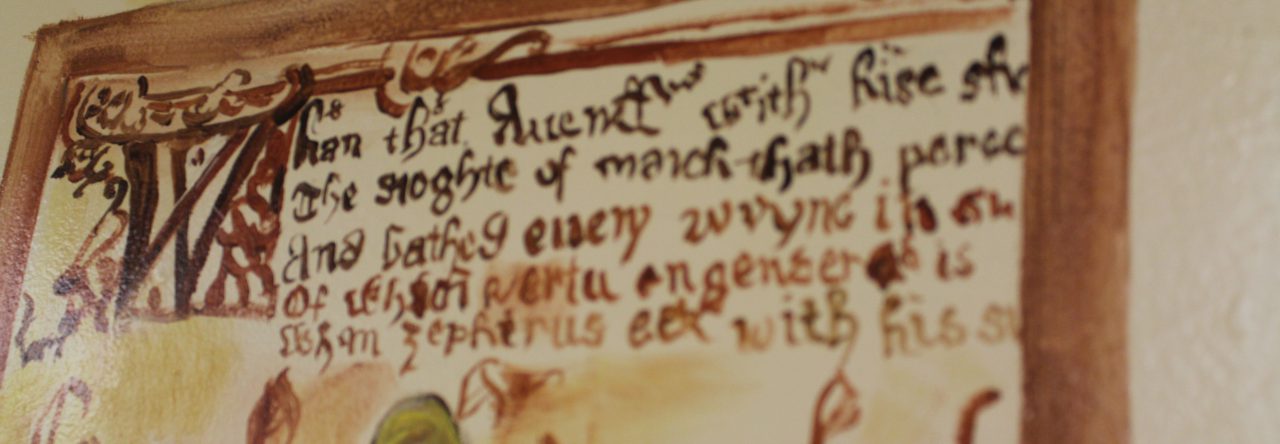 Whan that Aueryll with hise sh
The droghte of march hath perc
And bathed euery veyne in su
Of which vertu engendered is
Whan zephirus eek with his sw